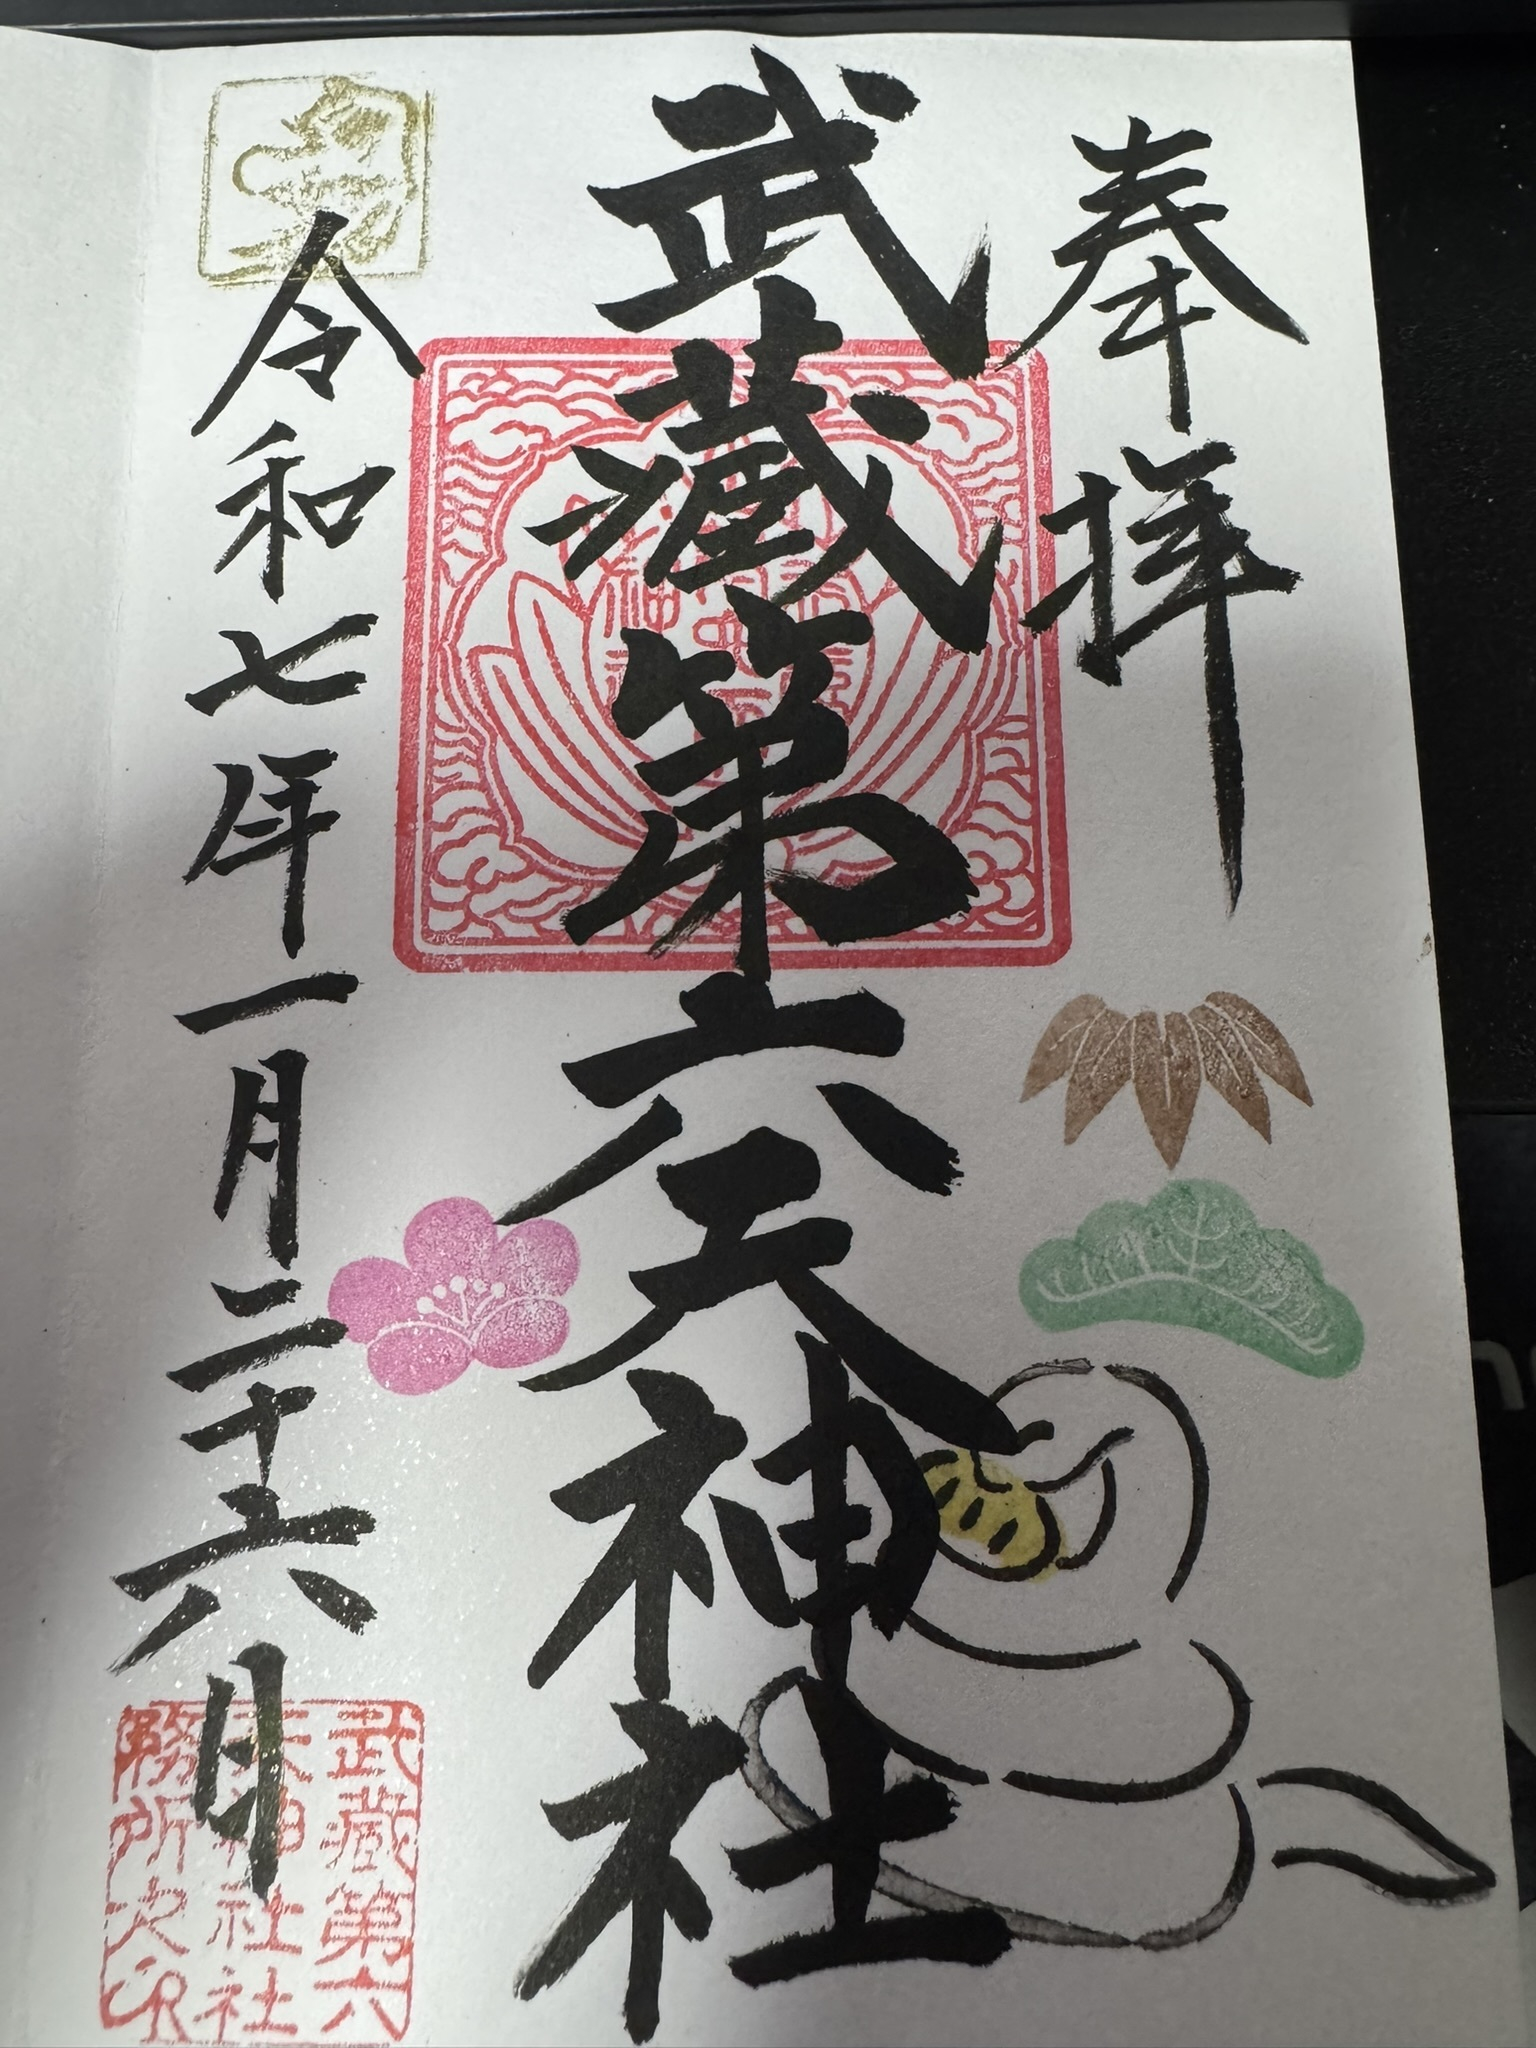 奉拝
武蔵第六天神社
令和七年一月二十六日
武蔵第六
天神社社
務所之印